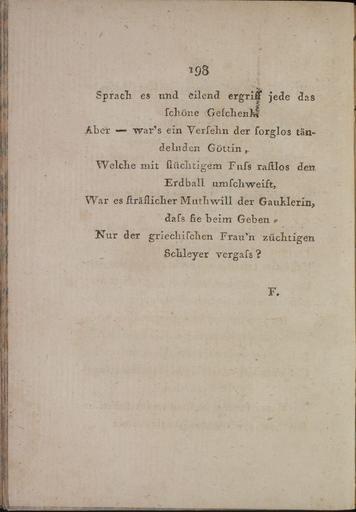 198
Sprach es und eilend ergriff jede das
ſchöne Geſchenk.
Aber — war's ein Verſehn der ſorglos tän-
delnden Göttin,
Welche mit flüchtigem Fuſs raſtlos den
Erdball umſchweift,
War es ſträflicher Muthwill der Gauklerin,
daſs ſie beim Geben,
Nur der griechiſchen Frau'n züchtigen
Schleyer vergaſs?
F.